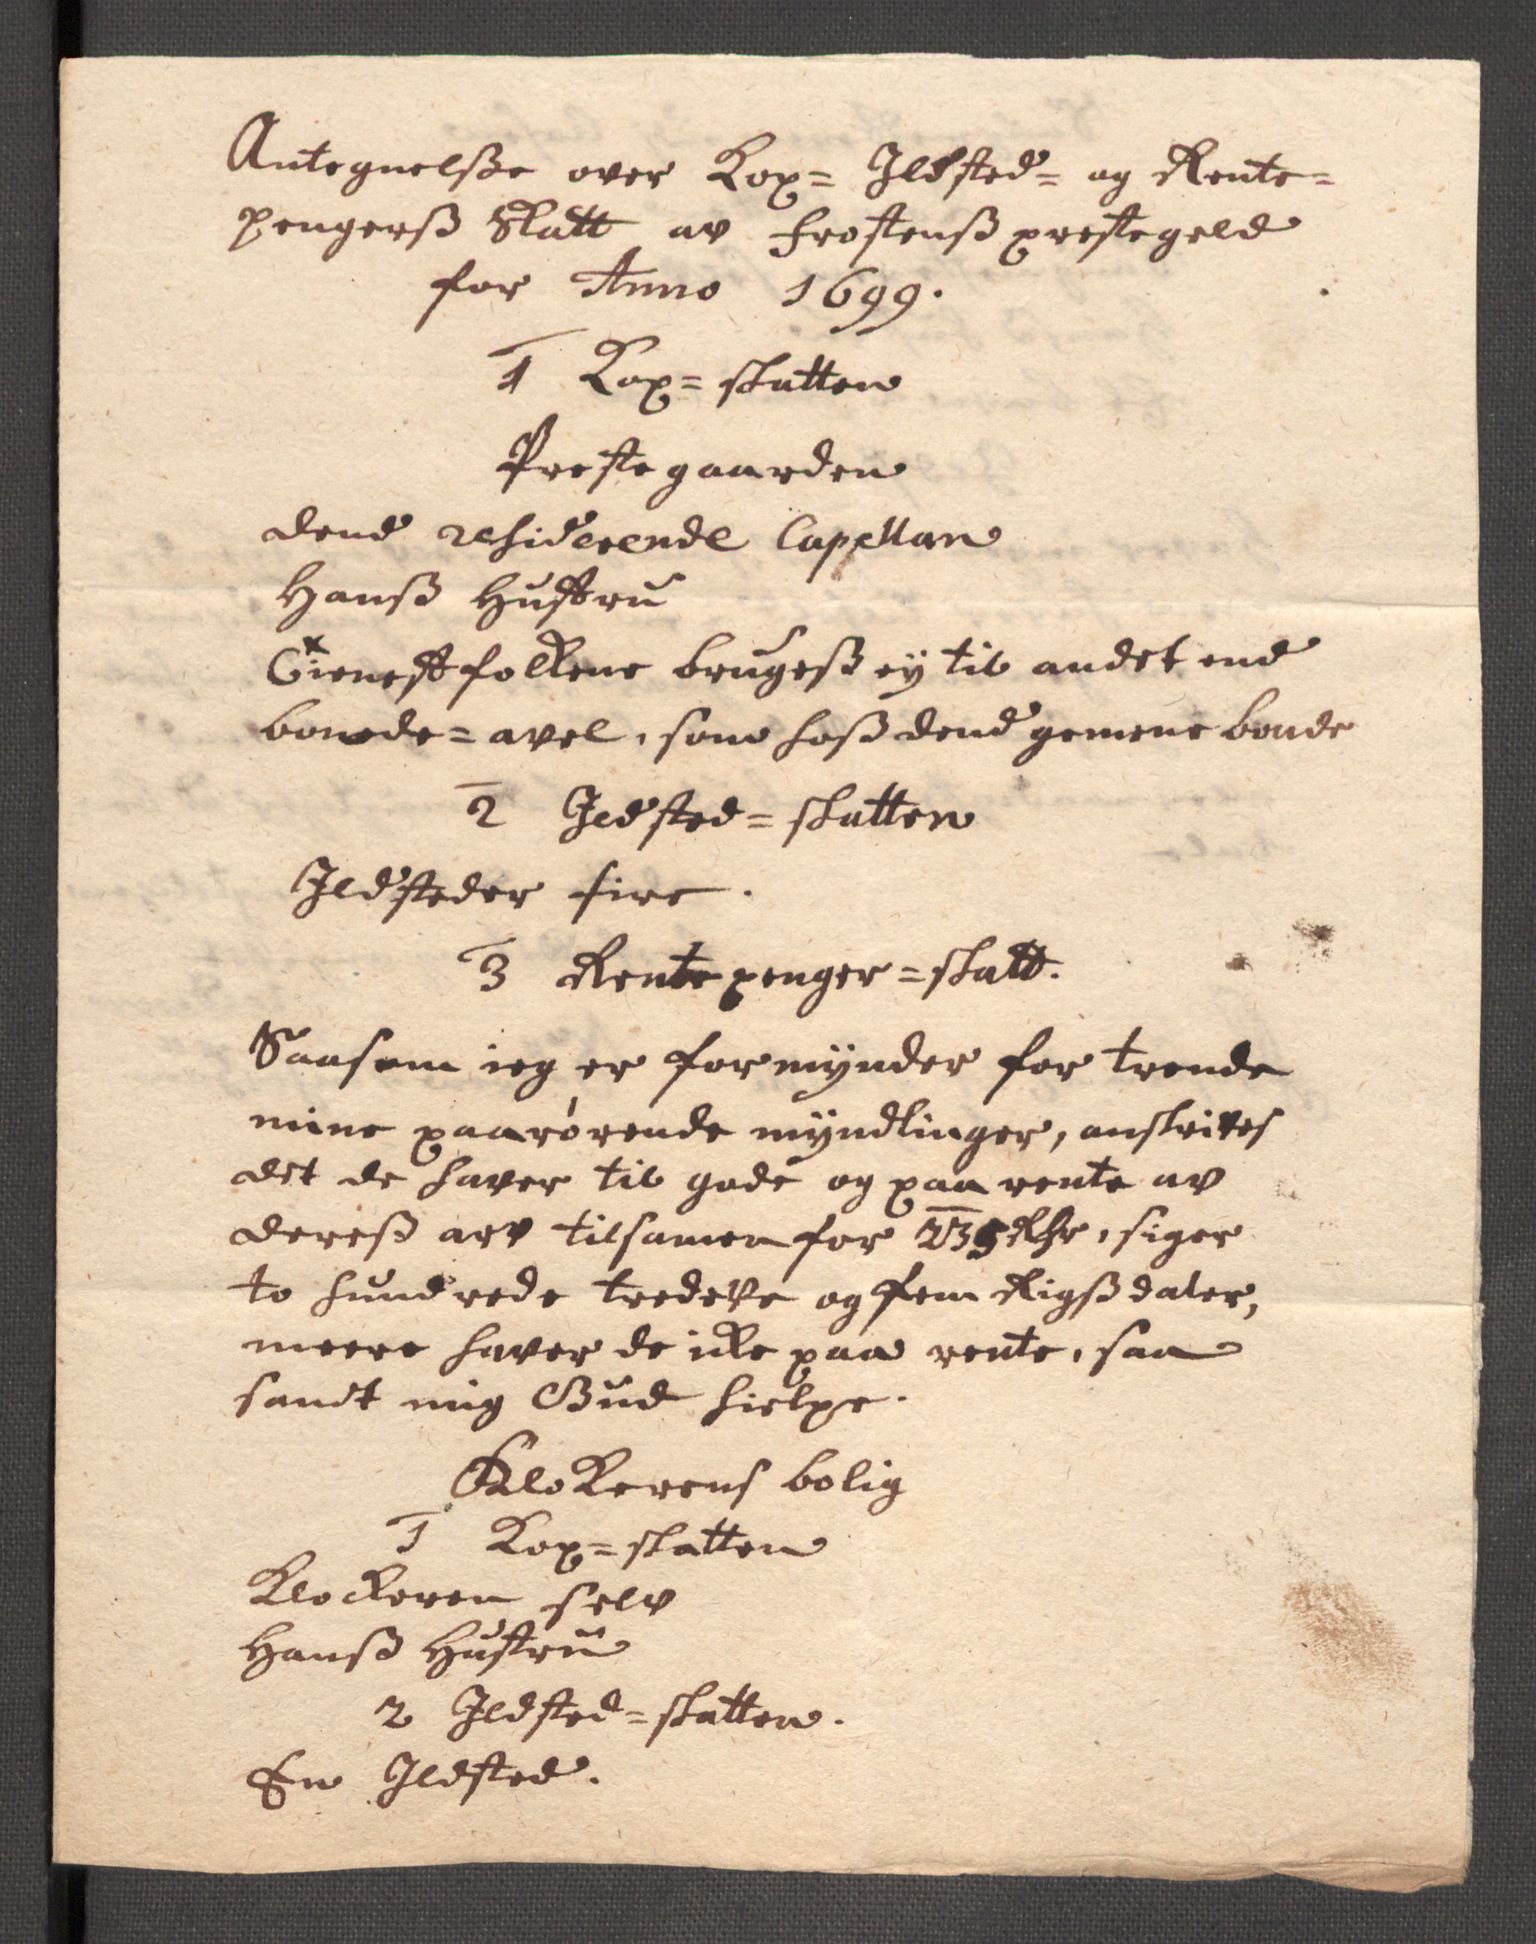 Antegnelsße over Kop= Ildsted= og Rente=
pengerß Skatt av Frostenß prestegeld
for Anno 1699.
1 Kop=skatten
Prestegaarden
dend residerende Capellan
Hanß Hustru
Tienestfolkene brugeß ey til andet end
bonede=avel, som hoß dend gemene bonde
2 Ildsted=skatten
Ildsteder fire.
3 Rentepenger=skatt.
Saasom ieg er formynder for trende
mine paarørende myndlinger, anskrives
det de haver til gode og paa rente av
dereß arv tilsamen for 235 Rdr, siger
to hundrede tredeve og fem Rigßdaler,
meere haver de icke paa rente, saa
sandt mig Gud hielpe.
Klokerens bolig
1 Kop=skatten
Klockeren selv
Hanß Hustru
2 Ildsted=skatten.
En Ildsted.